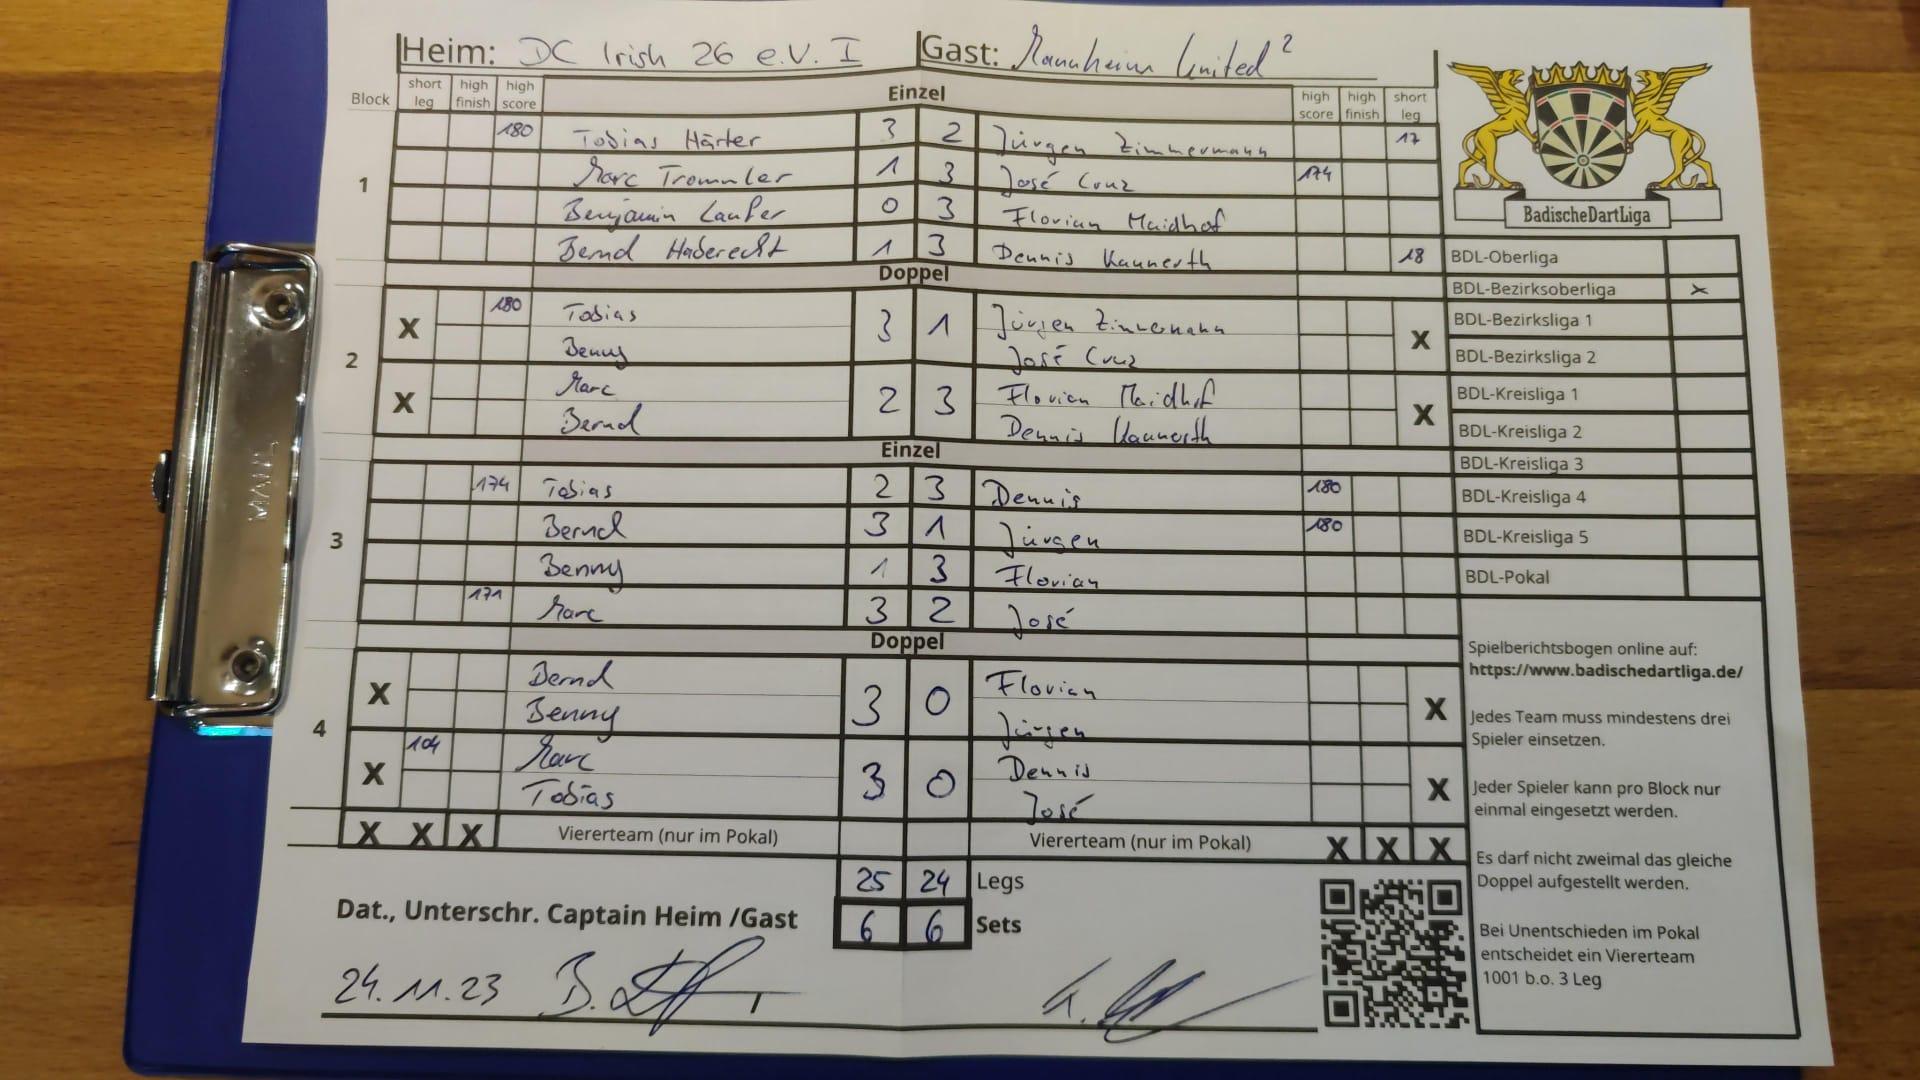 Heim: DC Irish 26 e.V. I Gast: Mannheim United 2
Block short leg high finish high score Einzel high score high finish short leg
1
180 Tobias Härter 3 2 Jürgen Zimmermann 17
Marc Trommler 1 3 José Cruz 174
Benjamin Laufer 0 3 Florian Maidhof
Bernd Haberecht 1 3 Dennis Kannerth 18
Doppel
2
X 180 Tobias 3 1 Jürgen Zimmermann X
Benny José Cruz
X Marc 2 3 Florian Maidhof X
Bernd Dennis Kannerth
Einzel
3
174 Tobias 2 3 Dennis 180
Bernd 3 1 Jürgen 180
Benny 1 3 Florian
171 Marc 3 2 José
Doppel
4
X Bernd 3 0 Florian X
Benny Jürgen
X 104 Marc 3 0 Dennis X
Tobias José
X X X Viererteam (nur im Pokal) Viererteam (nur im Pokal) X X X
25 24 Legs
6 6 Sets
Dat., Unterschr. Captain Heim /Gast
24.11.23
BadischeDartLiga
BDL-Oberliga
BDL-Bezirksoberliga x
BDL-Bezirksliga 1
BDL-Bezirksliga 2
BDL-Kreisliga 1
BDL-Kreisliga 2
BDL-Kreisliga 3
BDL-Kreisliga 4
BDL-Kreisliga 5
BDL-Pokal
Spielberichtsbogen online auf:
https://www.badischedartliga.de/
Jedes Team muss mindestens drei
Spieler einsetzen.
Jeder Spieler kann pro Block nur
einmal eingesetzt werden.
Es darf nicht zweimal das gleiche
Doppel aufgestellt werden.
Bei Unentschieden im Pokal
entscheidet ein Viererteam
1001 b.o. 3 Leg
MAUL